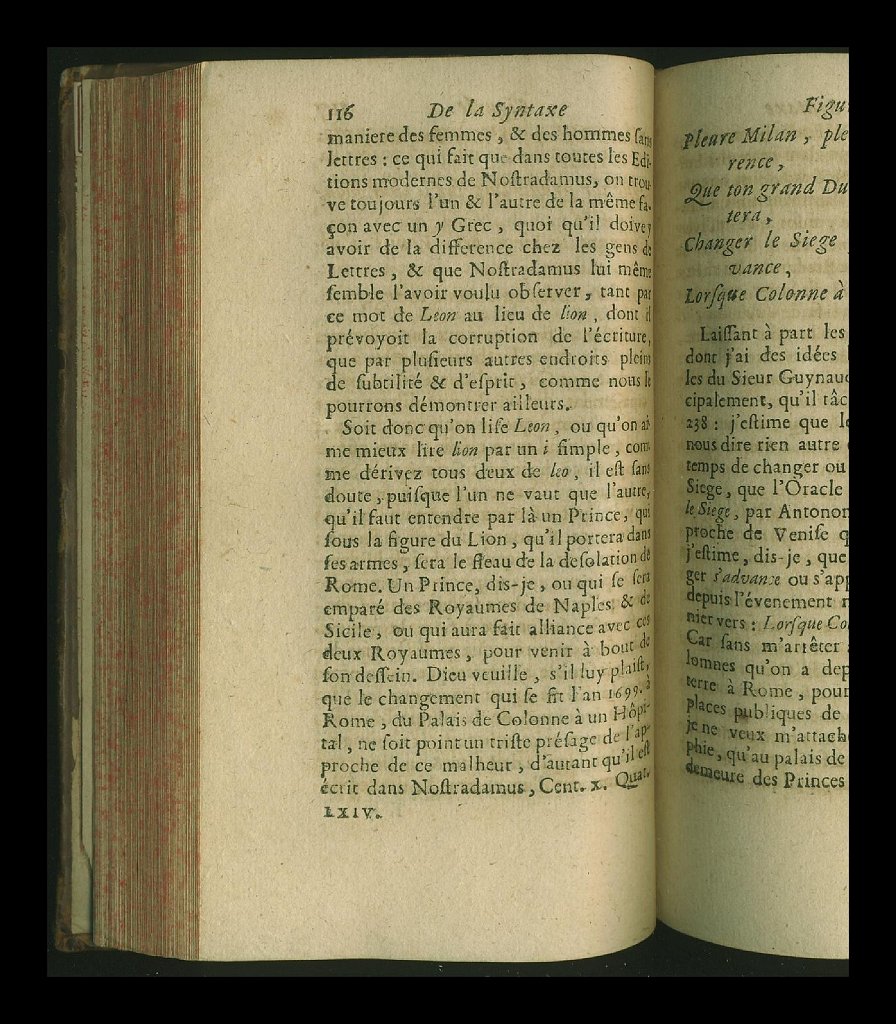 116 De la Syntaxe
maniere des femmes, & des hommes ſans
lettres : ce qui fait que dans toutes les Edi-
tions modernes de Noſtradamus, on trou-
ve toujours l'un & l'autre de la même fa-
çon avec un y Grec, quoi qu'il doive y
avoir de la difference chez les gens de
Lettres, & que Noſtradamus lui même
ſemble l'avoir voulu obſerver, tant par
ce mot de Leon au lieu de lion, dont il
prévoyoit la corruption de l'écriture,
que par pluſieurs autres endroits pleins
de ſubtilité & d'eſprit, comme nous le
pourrons démontrer ailleurs.
Soit donc qu'on liſe Leon, ou qu'on ai-
me mieux lire lion par un i ſimple, com-
me dérivez tous deux de leo, il eſt ſans
doute, puiſque l'un ne vaut que l'autre,
qu'il faut entendre par là un Prince, qui
ſous la figure du Lion, qu'il portera dans
ſes armes, ſera le fleau de la deſolation de
Rome. Un Prince, dis-je, ou qui ſe ſera
emparé des Royaumes de Naples & de
Sicile, ou qui aura fait alliance avec ces
deux Royaumes, pour venir à bout de
ſon deſſein. Dieu veuille, s'il luy plaiſt,
que le changement qui ſe fit l'an 1699. à
Rome, du Palais de Colonne à un Hôpi-
tal, ne ſoit point un triſte préſage de l'ap-
proche de ce malheur, d'autant qu'il eſt
écrit dans Noſtradamus, Cent. x. Quat.
LXIV.
Figu
Pleure Milan, ple
rence,
Que ton grand Du
tera,
Changer le Siege
vance,
Lorſque Colonne à
Laiſſant à part les
dont j'ai des idées
les du Sieur Guynaud
cipalement, qu'il tâc
238 : j'eſtime que
nous dire rien autre
temps de changer ou
Siege, que l'Oracle
le Siege, par Antonom
proche de Veniſe q
j'eſtime, dis-je, que
ger s'advance ou s'app
depuis l'évenement
nier vers : Lorſque Col
Car ſans m'arrêter
lomnes qu'on a dep
terre à Rome, pour
places publiques de
je ne veux m'attach
phie, qu'au palais de
demeure des Princes